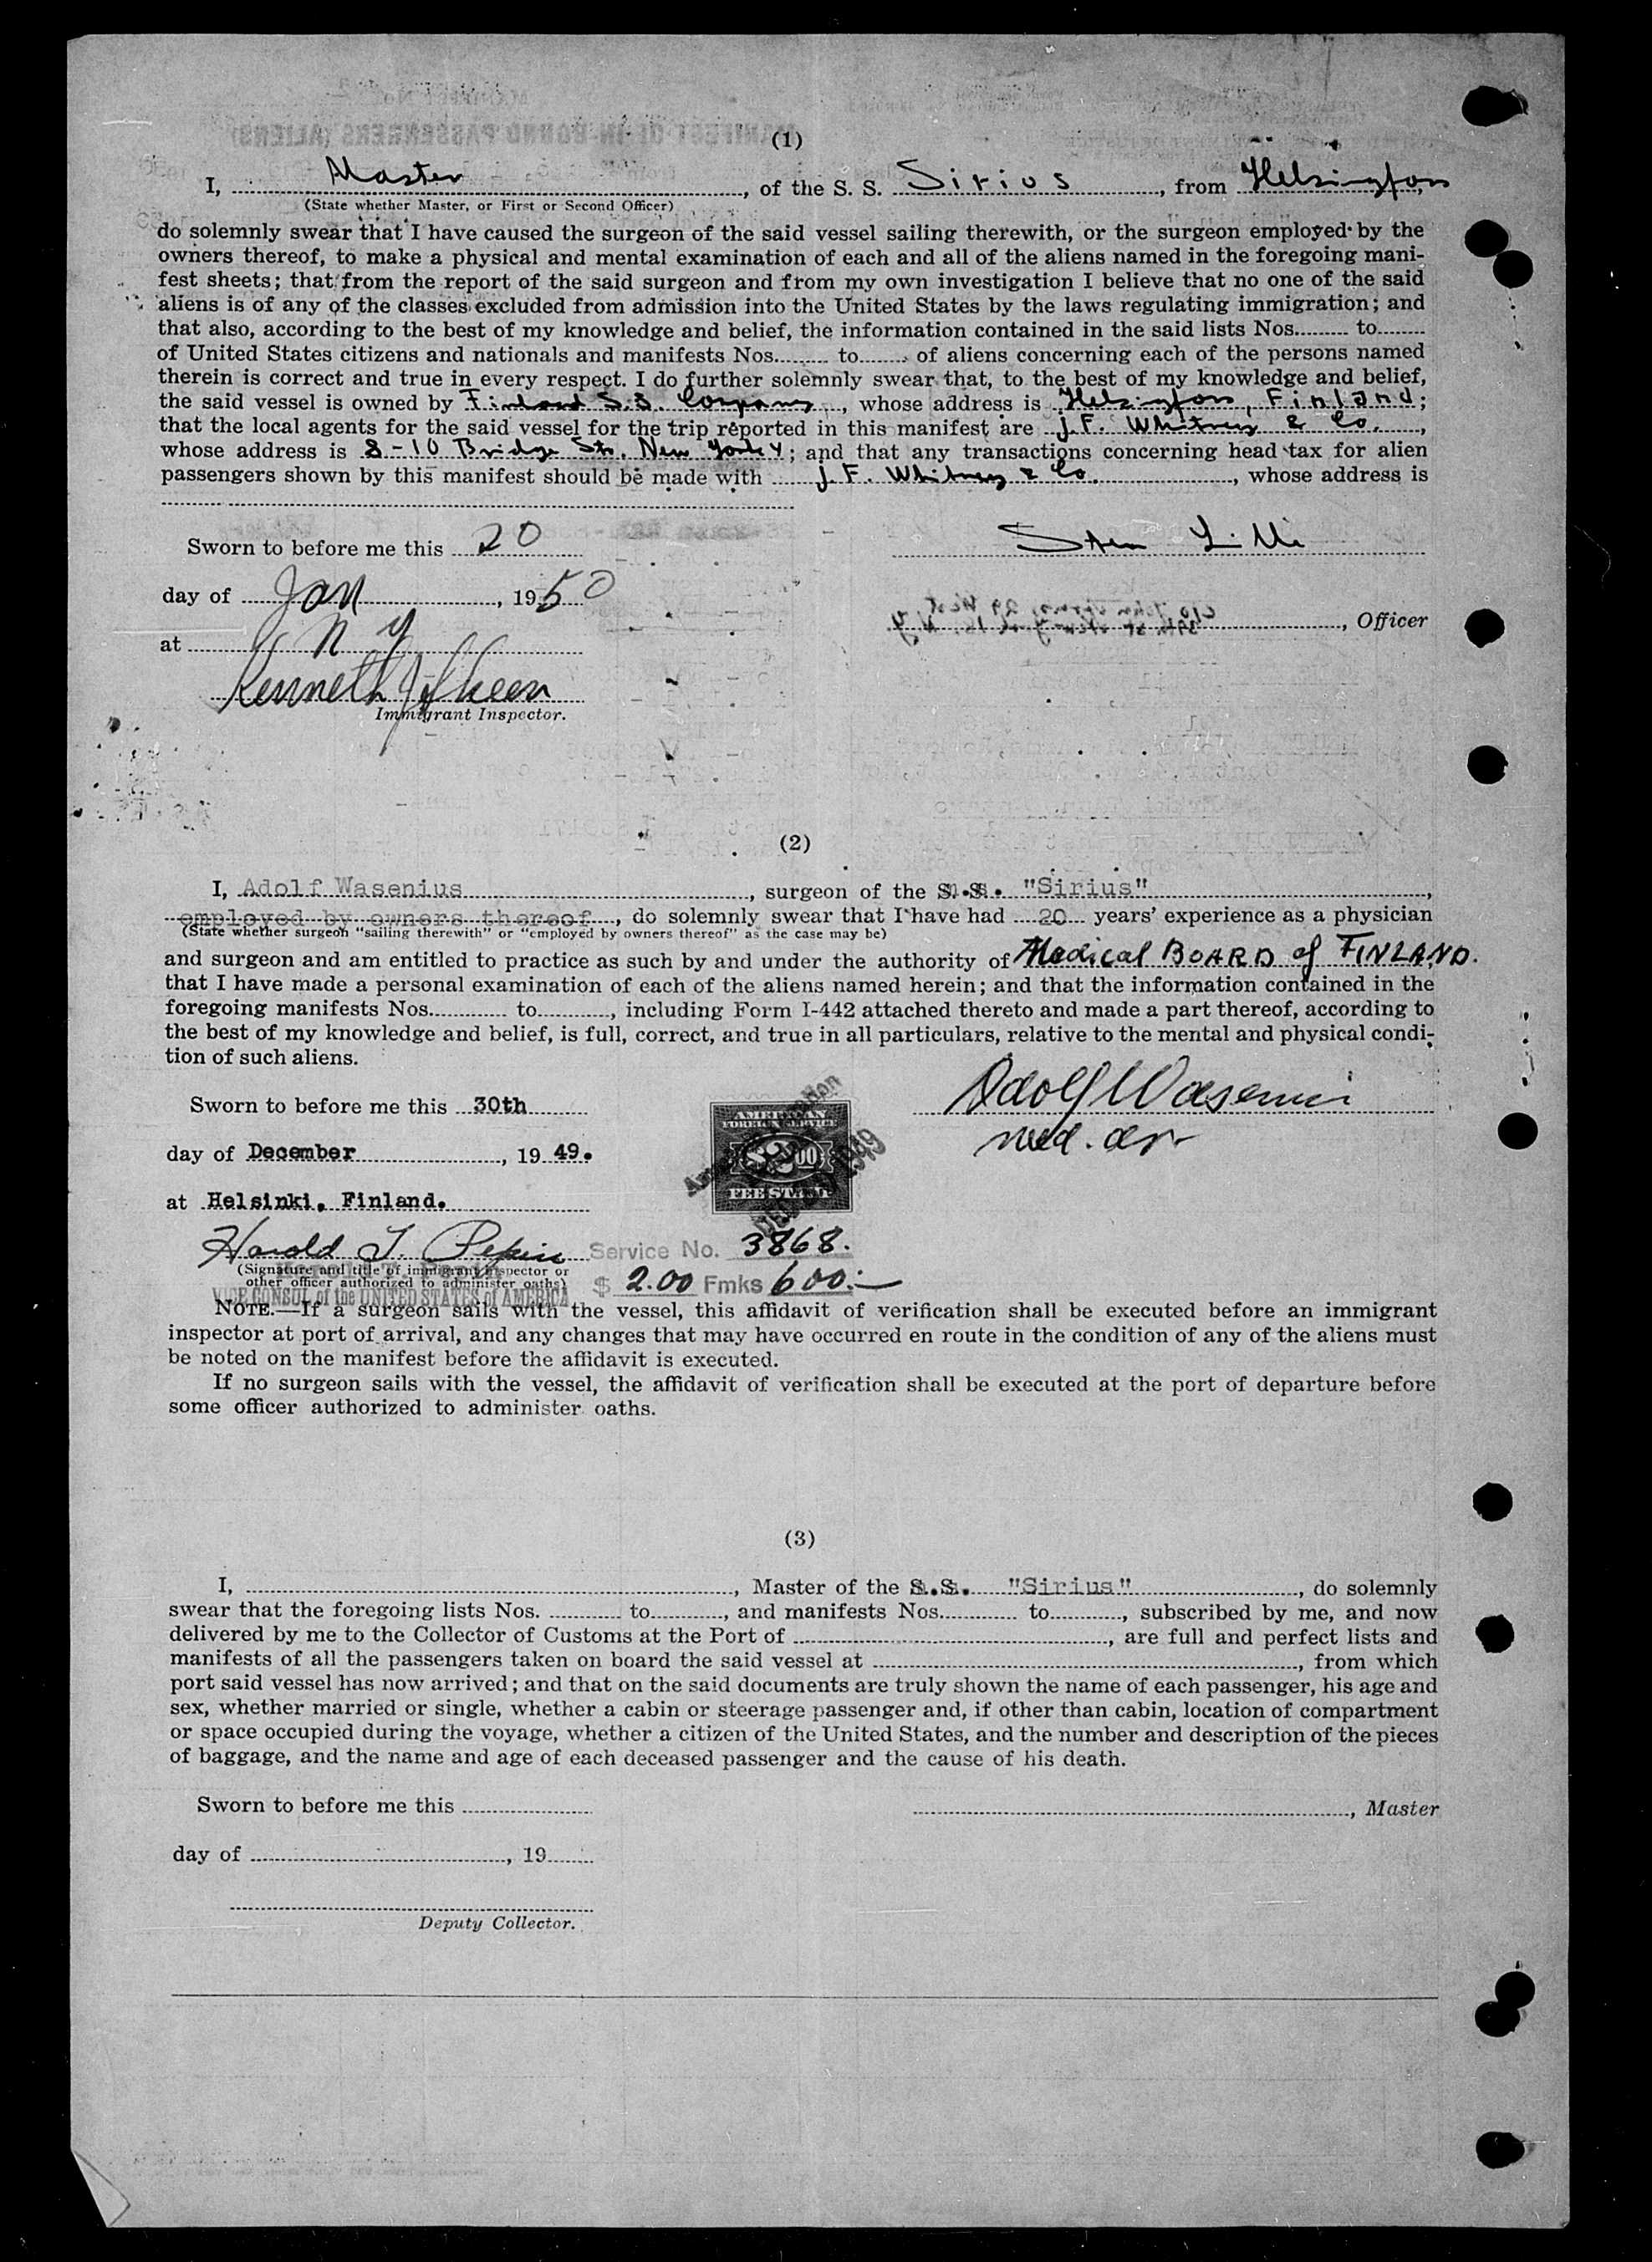 (1)
I, Master, of the S. S. Sirius, from Helsingfors,
(State whether Master, or First or Second Officer)
do solemnly swear that I have caused the surgeon of the said vessel sailing therewith, or the surgeon employed by the
owners thereof, to make a physical and mental examination of each and all of the aliens named in the foregoing mani-
fest sheets; that from the report of the said surgeon and from my own investigation I believe that no one of the said
aliens is of any of the classes excluded from admission into the United States by the laws regulating immigration; and
that also, according to the best of my knowledge and belief, the information contained in the said lists Nos. to
of United States citizens and nationals and manifests Nos. to of aliens concerning each of the persons named
therein is correct and true in every respect. I do further solemnly swear that, to the best of my knowledge and belief,
the said vessel is owned by Finland S.S. Company, whose address is Helsingfors, Finland;
that the local agents for the said vessel for the trip reported in this manifest are J.F. Whitney & Co.,
whose address is 8-10 Bridge Str. New York 4; and that any transactions concerning head tax for alien
passengers shown by this manifest should be made with J.F. Whitney & Co., whose address is
Sworn to before me this 20
Sten Lilli
day of Jan, 1950
, Officer
at N Y
Kenneth
Immigrant Inspector.
(2)
I, Adolf Wasenius, surgeon of the m.s. "Sirius",
employed by owners thereof, do solemnly swear that I have had 20 years' experience as a physician
(State whether surgeon "sailing therewith" or "employed by owners thereof" as the case may be)
and surgeon and am entitled to practice as such by and under the authority of Medical BOARD of FINLAND.
that I have made a personal examination of each of the aliens named herein; and that the information contained in the
foregoing manifests Nos. to, including Form I-442 attached thereto and made a part thereof, according to
the best of my knowledge and belief, is full, correct, and true in all particulars, relative to the mental and physical condi-
tion of such aliens.
Sworn to before me this 30th
Adolf Wasenius
med. dr
day of December, 19 49.
AMERICAN
FOREIGN SERVICE
$2.00
FEE STAMP
at Helsinki, Finland.
Harold T. Pepin
Service No. 3868.
(Signature and title of immigrant inspector or
other officer authorized to administer oaths)
$ 2.00 Fmks 600:—
VICE CONSUL of the UNITED STATES of AMERICA
NOTE.—If a surgeon sails with the vessel, this affidavit of verification shall be executed before an immigrant
inspector at port of arrival, and any changes that may have occurred en route in the condition of any of the aliens must
be noted on the manifest before the affidavit is executed.
If no surgeon sails with the vessel, the affidavit of verification shall be executed at the port of departure before
some officer authorized to administer oaths.
(3)
I, , Master of the m.s. "Sirius", do solemnly
swear that the foregoing lists Nos. to, and manifests Nos. to, subscribed by me, and now
delivered by me to the Collector of Customs at the Port of , are full and perfect lists and
manifests of all the passengers taken on board the said vessel at , from which
port said vessel has now arrived; and that on the said documents are truly shown the name of each passenger, his age and
sex, whether married or single, whether a cabin or steerage passenger and, if other than cabin, location of compartment
or space occupied during the voyage, whether a citizen of the United States, and the number and description of the pieces
of baggage, and the name and age of each deceased passenger and the cause of his death.
Sworn to before me this
, Master
day of , 19
Deputy Collector.